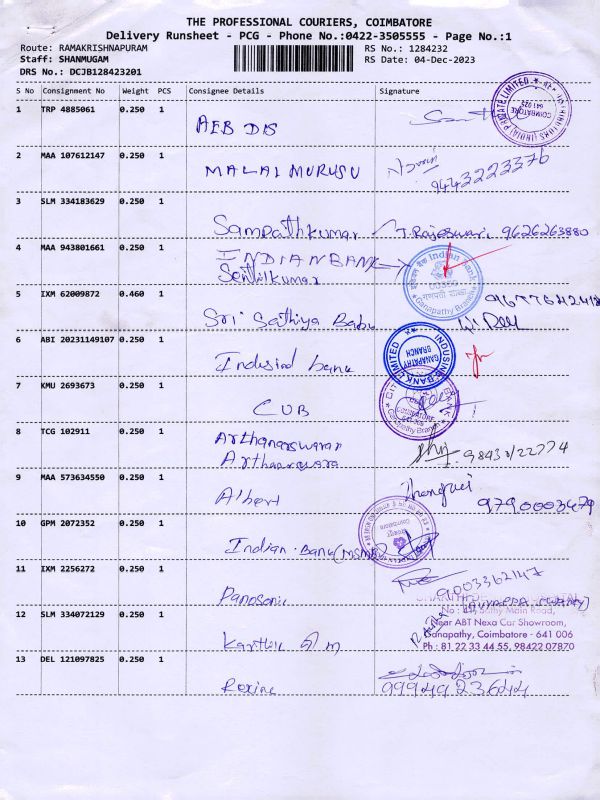 THE PROFESSIONAL COURIERS, COIMBATORE
Delivery Runsheet - PCG - Phone No.:0422-3505555 - Page No.:1
Route: RAMAKRISHNAPURAM RS No.: 1284232
Staff: SHANMUGAM RS Date: 04-Dec-2023
DRS No.: DCJB128423201
S No Consignment No Weight PCS Consignee Details Signature
1 TRP 4885061 0.250 1
AEB DIS
641 023
COIMBATORE
2 MAA 107612147 0.250 1
MALAI MURUSU 9443223376
3 SLM 334183629 0.250 1
Sampathkumar T. Rajeswari 9626263880
4 MAA 943801661 0.250 1
INDIAN BANK
Senthilkumar
Indian Bank
00350
Ganapathy Branch
5 IXM 62009872 0.460 1
Sri Sathiya Babu
6 ABI 20231149107 0.250 1
Indusind bank
INDUSIND BANK LIMITED
GANAPATHY BRANCH
7 KMU 2693673 0.250 1
CUB
COIMBATORE
Ganapathy Branch
8 TCG 102911 0.250 1
Arthanarswarar
9 MAA 573634550 0.250 1
Albert 9790003479
10 GPM 2072352 0.250 1
Indian Bank (MSME)
11 IXM 2256272 0.250 1
Panosonic 9003362147
12 SLM 334072129 0.250 1
Karthik
Main Road,
Near ABT Nexa Car Showroom,
Ganapathy, Coimbatore - 641 006
Ph : 81 22 33 44 55, 98422 07870
13 DEL 121097825 0.250 1
Roxine 9994923644